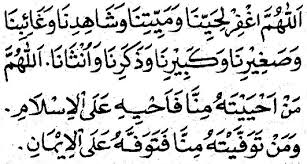 اَللّٰهُمَّ اغْفِرْ لِحَيِّنَا وَمَيِّتِنَا وَشَاهِدِنَا وَغَائِبِنَا
وَصَغِيْرِنَا وَكَبِيْرِنَا وَذَكَرِنَا وَاُنْثَانَا. اَللّٰهُمَّ
مَنْ اَحْيَيْتَهُ مِنَّا فَاَحْيِهِ عَلَى الْاِسْلَامِ.
وَمَنْ تَوَفَّيْتَهُ مِنَّا فَتَوَفَّهُ عَلَى الْاِيْمَانِ.